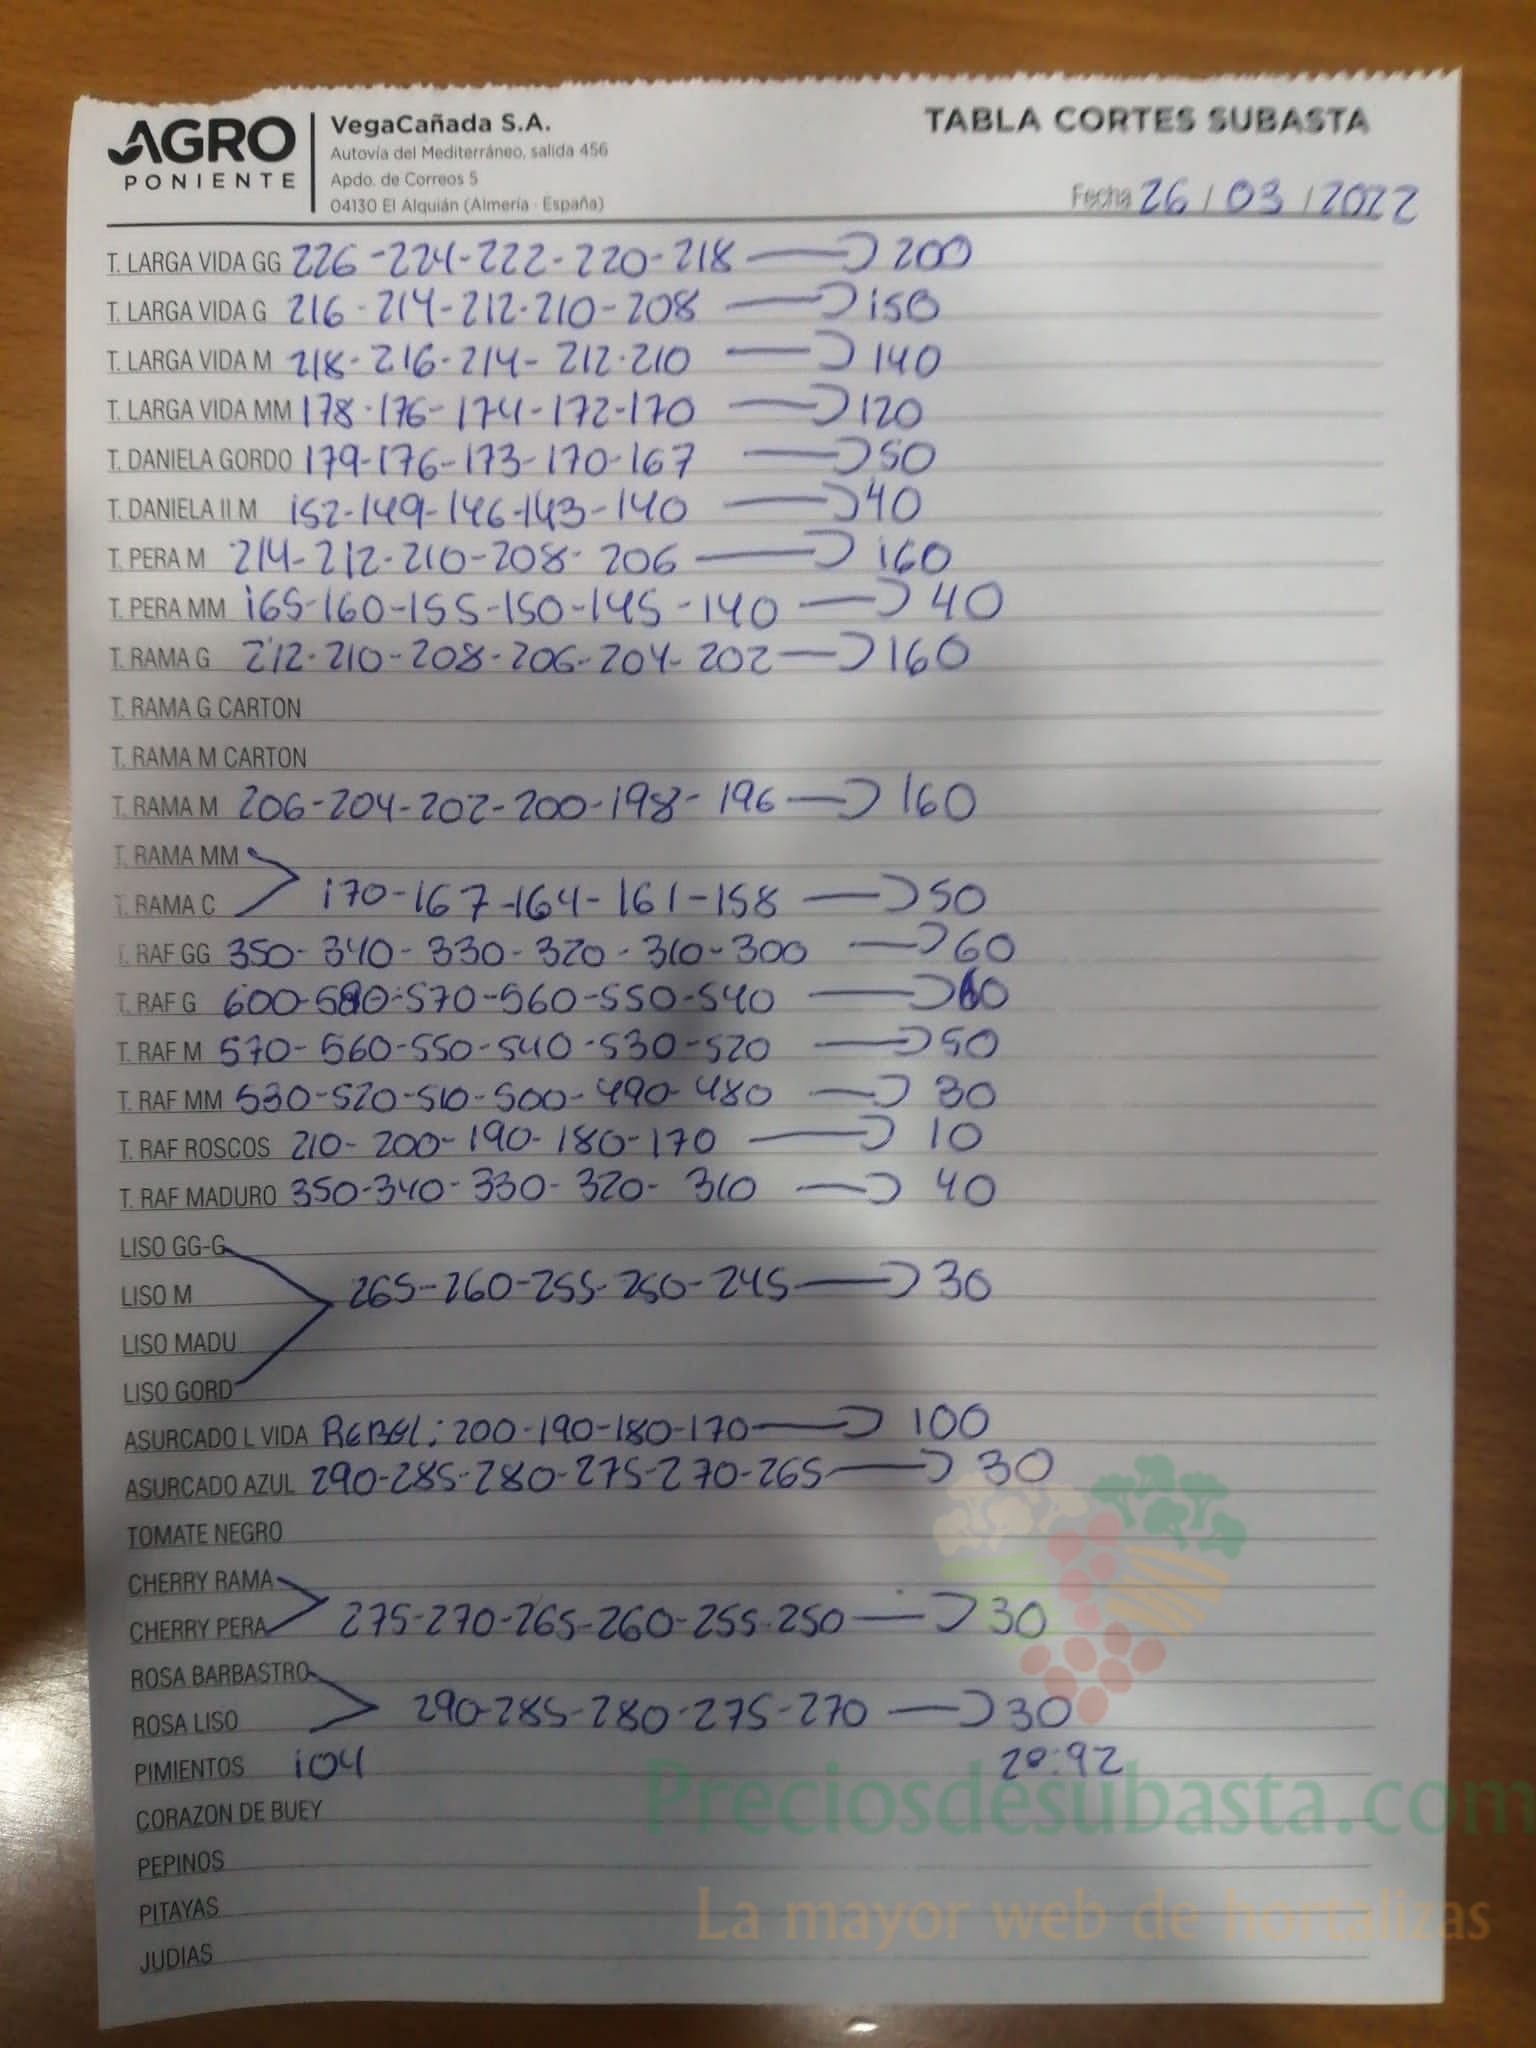 AGRO
PONIENTE
VegaCañada S.A.
Autovía del Mediterráneo, salida 456
Apdo. de Correos 5
04130 El Alquián (Almería - España)
TABLA CORTES SUBASTA
Fecha 26 / 03 / 2022
T. LARGA VIDA GG 226-224-222-220-218 200
T. LARGA VIDA G 216-214-212-210-208 150
T. LARGA VIDA M 218-216-214-212-210 140
T. LARGA VIDA MM 178-176-174-172-170 120
T. DANIELA GORDO 179-176-173-170-167 50
T. DANIELA II M 152-149-146-143-140 40
T. PERA M 214-212-210-208-206 160
T. PERA MM 165-160-155-150-145-140 40
T. RAMA G 212-210-208-206-204-202 160
T. RAMA G CARTON
T. RAMA M CARTON
T. RAMA M 206-204-202-200-198-196 160
T. RAMA MM
T. RAMA C 170-167-164-161-158 50
T. RAF GG 350-340-330-320-310-300 60
T. RAF G 600-580-570-560-550-540 60
T. RAF M 570-560-550-540-530-520 50
T. RAF MM 530-520-510-500-490-480 30
T. RAF ROSCOS 210-200-190-180-170 10
T. RAF MADURO 350-340-330-320-310 40
LISO GG-G
LISO M 265-260-255-250-245 30
LISO MADU
LISO GORD
ASURCADO L VIDA REBEL: 200-190-180-170 100
ASURCADO AZUL 290-285-280-275-270-265 30
TOMATE NEGRO
CHERRY RAMA
CHERRY PERA 275-270-265-260-255-250 30
ROSA BARBASTRO
ROSA LISO 290-285-280-275-270 30
PIMIENTOS 104 20:92
CORAZON DE BUEY
PEPINOS
PITAYAS
JUDIAS
Preciosdesubasta.com
La mayor web de hortalizas